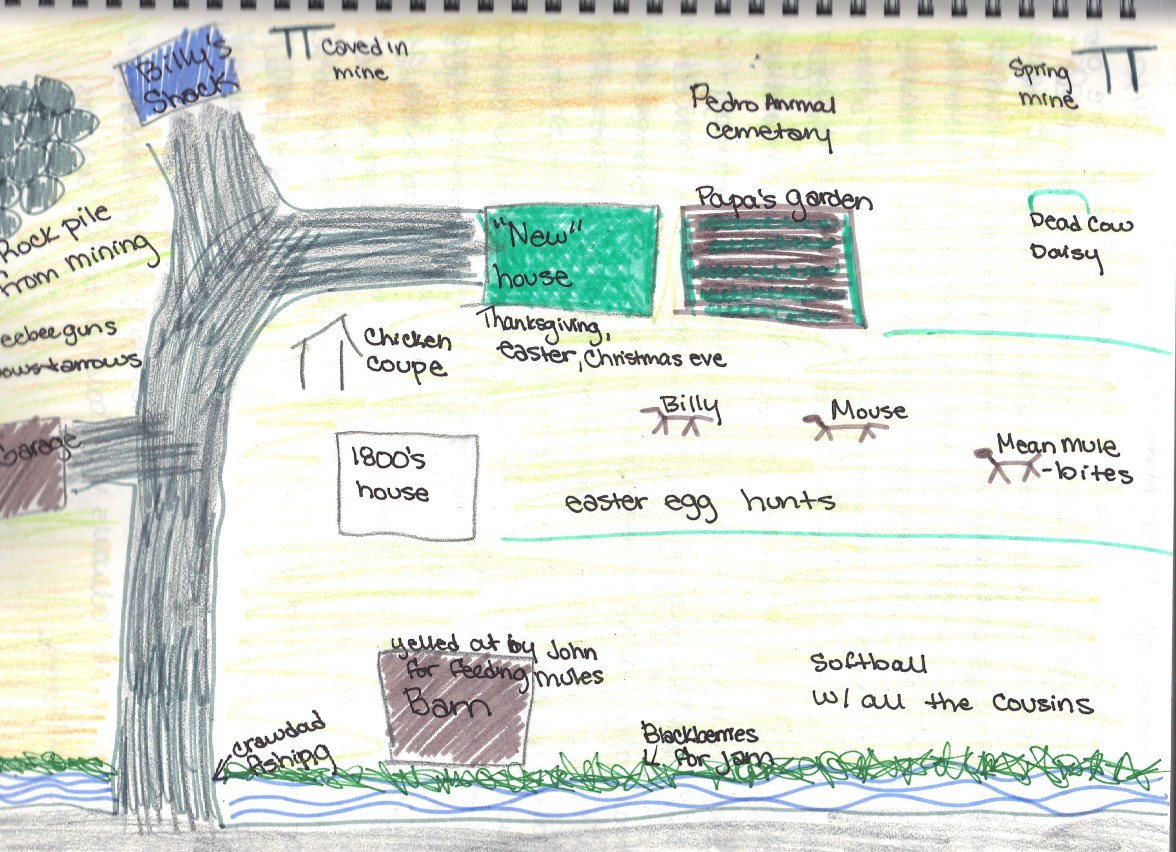 Billy's
Shack
Caved in
mine
Spring
mine
Pedro Animal
cemetary
Papa's garden
Rock pile
from mining
"New"
house
Dead Cow
Daisy
eebee guns
ows + arrows
Chicken
coupe
Thanksgiving,
easter, Christmas eve
Billy
Mouse
Mean mule
-bites
Garage
1800's
house
easter egg hunts
yelled at by John
for feeding mules
Barn
Softball
w/ all the cousins
crawdad
fishing
Blackberries
for jam